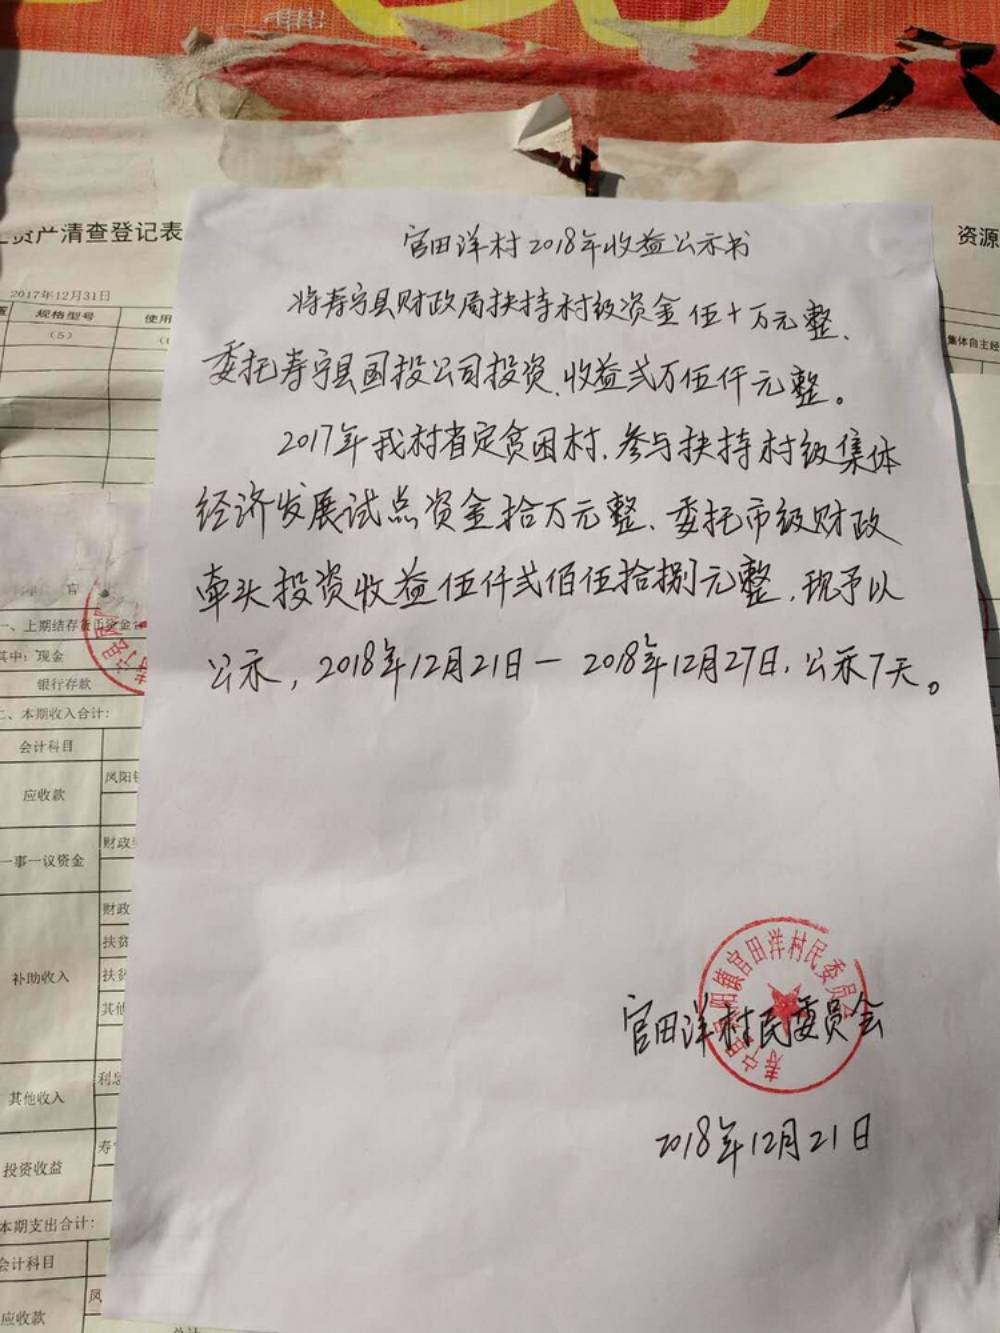 资产清查登记表
资源
2017年12月31日
规格型号
使用
(5)
集体自主经
官田洋村2018年收益公示书
将寿宁县财政局扶持村级资金伍十万元整、
委托寿宁县国投公司投资、收益贰万伍仟元整。
2017年我村省定贫困村、参与扶持村级集体
经济发展试点资金拾万元整、委托市级财政
牵头投资收益伍仟贰佰伍拾捌元整,现予以
公示,2018年12月21日一2018年12月27日.公示7天。
官
一、上期结存货币资金合
其中:现金
银行存款
二、本期收入合计:
会计科目
应收款
凤阳镇
一事一议资金
财政
补助收入
财政
扶贫
扶贫
其他
其他收入
利息
投资收益
寿宁
本期支出合计:
会计科目
应收款
凤
总计
寿宁县凤阳镇官田洋村民委员会
官田洋村民委员会
2018年12月21日